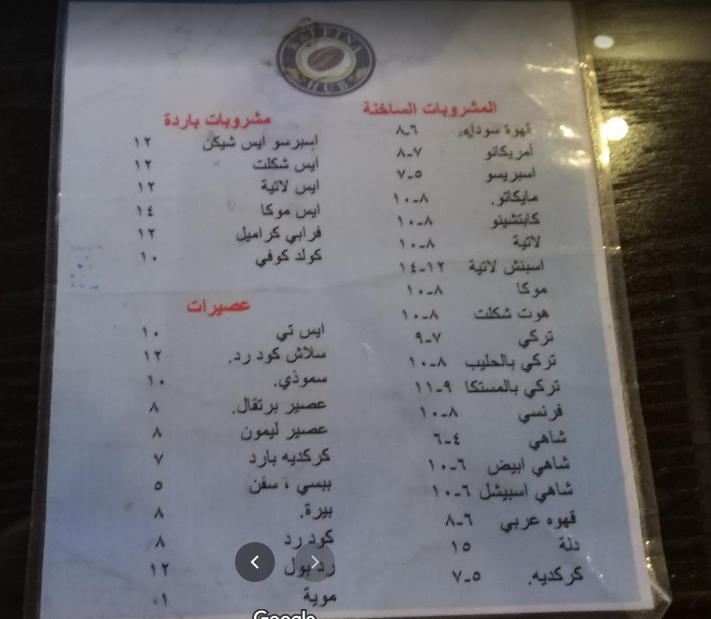 KAIFINA
HUB
المشروبات الساخنة
قهوة سوداء ٦-٨
أمريكانو ٧-٨
اسبريسو ٥-٧
مايكاتو. ٨-١٠
كابتشينو ٨-١٠
لاتية ٨-١٠
اسبنش لاتية ١٢-١٤
موكا ٨-١٠
هوت شكلت ٨-١٠
تركي ٧-٩
تركي بالحليب ٨-١٠
تركي بالمستكا ٩-١١
فرنسي ٨-١٠
شاهي ٤-٦
شاهي ابيض ٦-١٠
شاهي اسبيشل ٦-١٠
قهوه عربي ٦-٨
دلة ١٥
كركديه. ٥-٧
مشروبات باردة
اسبرسو ايس شيكن ١٢
ايس شكلت ١٢
ايس لاتية ١٢
ايس موكا ١٤
فرابي كراميل ١٢
كولد كوفي ١٠
عصيرات
ايس تي ١٠
سلاش كود رد. ١٢
سموذي. ١٠
عصير برتقال. ٨
عصير ليمون ٨
كركديه بارد ٧
ببسي ، سفن ٥
بيرة. ٨
كود رد ٨
رد بول ١٢
موية ١
Google